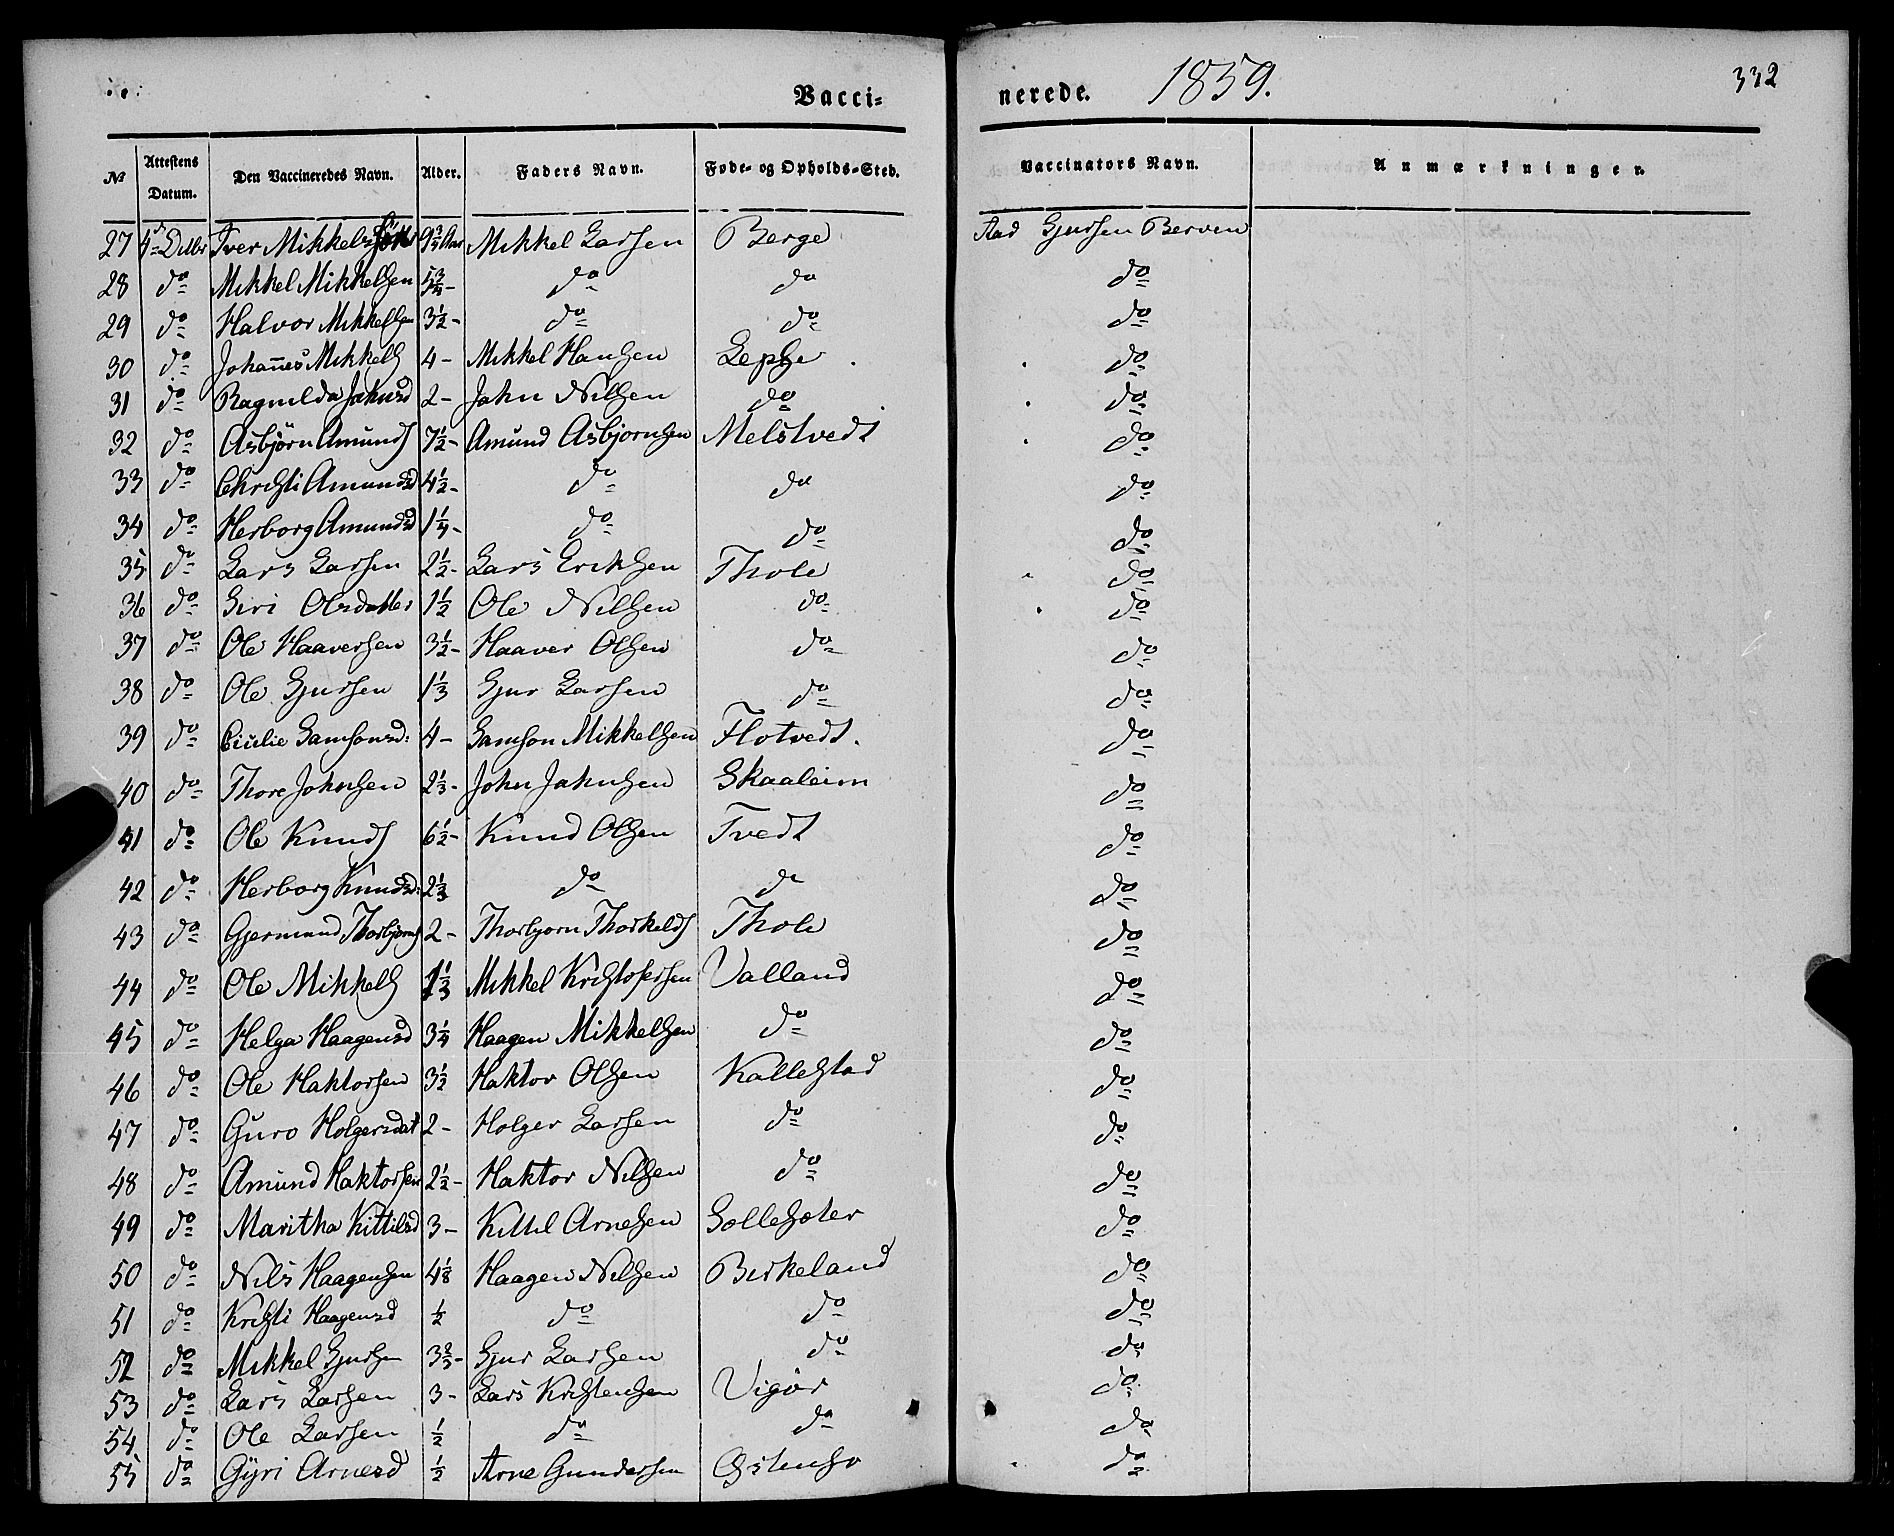 Vacci- nerede. 1859. 332
No Attestens Datum. Den Vaccineredes Navn. Alder. Faders Navn. Føde- og Opholds-Sted. Vaccinators Navn. Anmærkninger.
27 4de Iver Mikkels Mikkel Larsen Berge Aad Gjursen Berven
28 do Mikkel Mikkelsen 5 3/4 - do do do
29 do Halvor Mikkelsen 3 1/2 - do do do
30 do Johannes Mikkels 4 - Mikkel Hansen do
31 do Ragnilda Johnsd 2 - John Nilsen do do
32 do Asbjörn Amunds 7 1/2 - Amund Asbjornsen Melstvedt do
33 do Christi Amundsd 4 1/2 - do do do
34 do Herborg Amundsd 1 1/4 - do do do
35 do Lars Larsen 2 1/2 - Lars Eriksen Thole do
36 do Siri Olsdatter 1 1/2 Ole Nilsen do do
37 do Ole Haaversen 3 1/2 - Haaver Olsen do do
38 do Ole Gjursen 1 1/3 Gjur Larsen do do
39 do Cicilie Samsonsd: 4 - Samson Mikkelsen Flotvedt. do
40 do Thore Johnsen 2 1/3 - John Johnsen Skaaleim do
41 do Ole Knuds 6 1/2 - Knud Olsen Tvedt do
42 do Herborg Knudsd: 2 1/3 do do do
43 do Gjermund Thorbjorns 2 - Thorbjorn Thorkelds Thole do
44 do Ole Mikkels 1 1/3 Mikkel Kristofersen Valland do
45 do Helga Haagensd 3 1/4 Haagen Mikkelsen do do
46 do Ole Haktorsen 3 1/2 Haktor Olsen Kallestad do
47 do Guro Holgersdat 2 - Holger Larsen do do
48 do Amund Haktorsen 2 1/2 - Haktor Nilsen do do
49 do Maritha Kittilsd 3 - Kittil Arnesen do
50 do Nils Haagensen 4 1/8 Haagen Nilsen Birkeland do
51 do Kristi Haagensd 1/2 do do do
52 do Mikkel Gjursen 3 2/3 - Gjur Larsen do do
53 do Lars Larsen 3 - Lars Kristensen Vigör do
54. do Ole Larsen 1/2 do do do
55 do Gÿri Arnesd 1/2 Arne Gundersen do